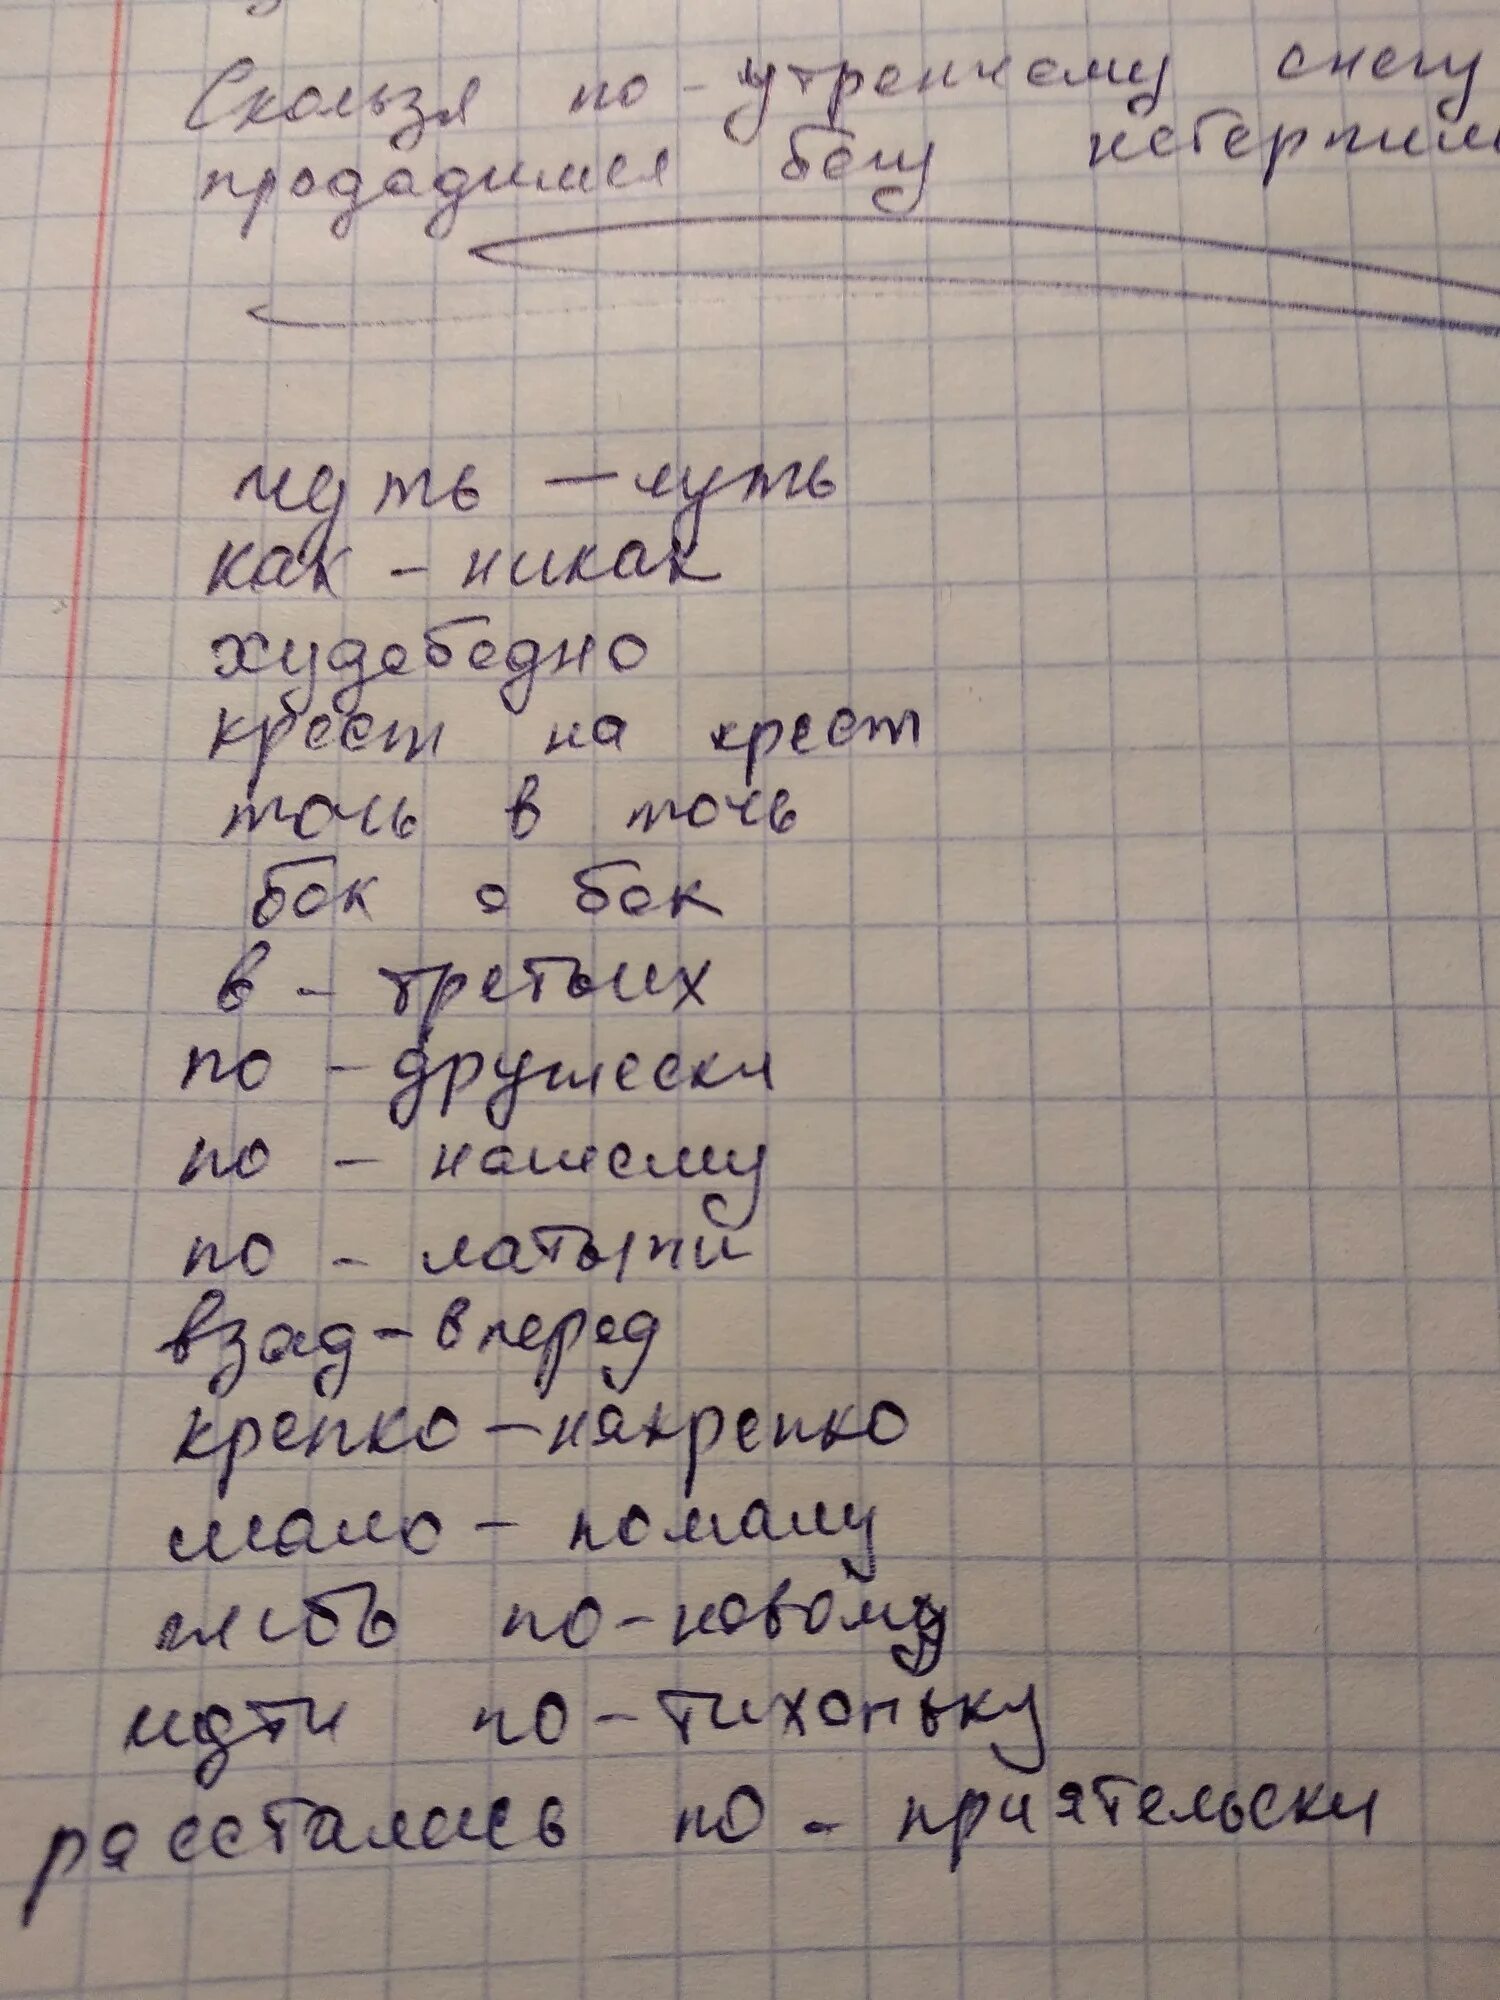 Скользя по-утреннему снегу
продадимся бегу нетерпим
чуть — чуть
как - никак
худобедно
крест на крест
точь в точь
бок о бок
в - третьих
по - дружески
по - нашему
по - латыни
взад - вперед
крепко - накрепко
мало - помалу
жить по - новому
идти по - тихоньку
расстались по - приятельски